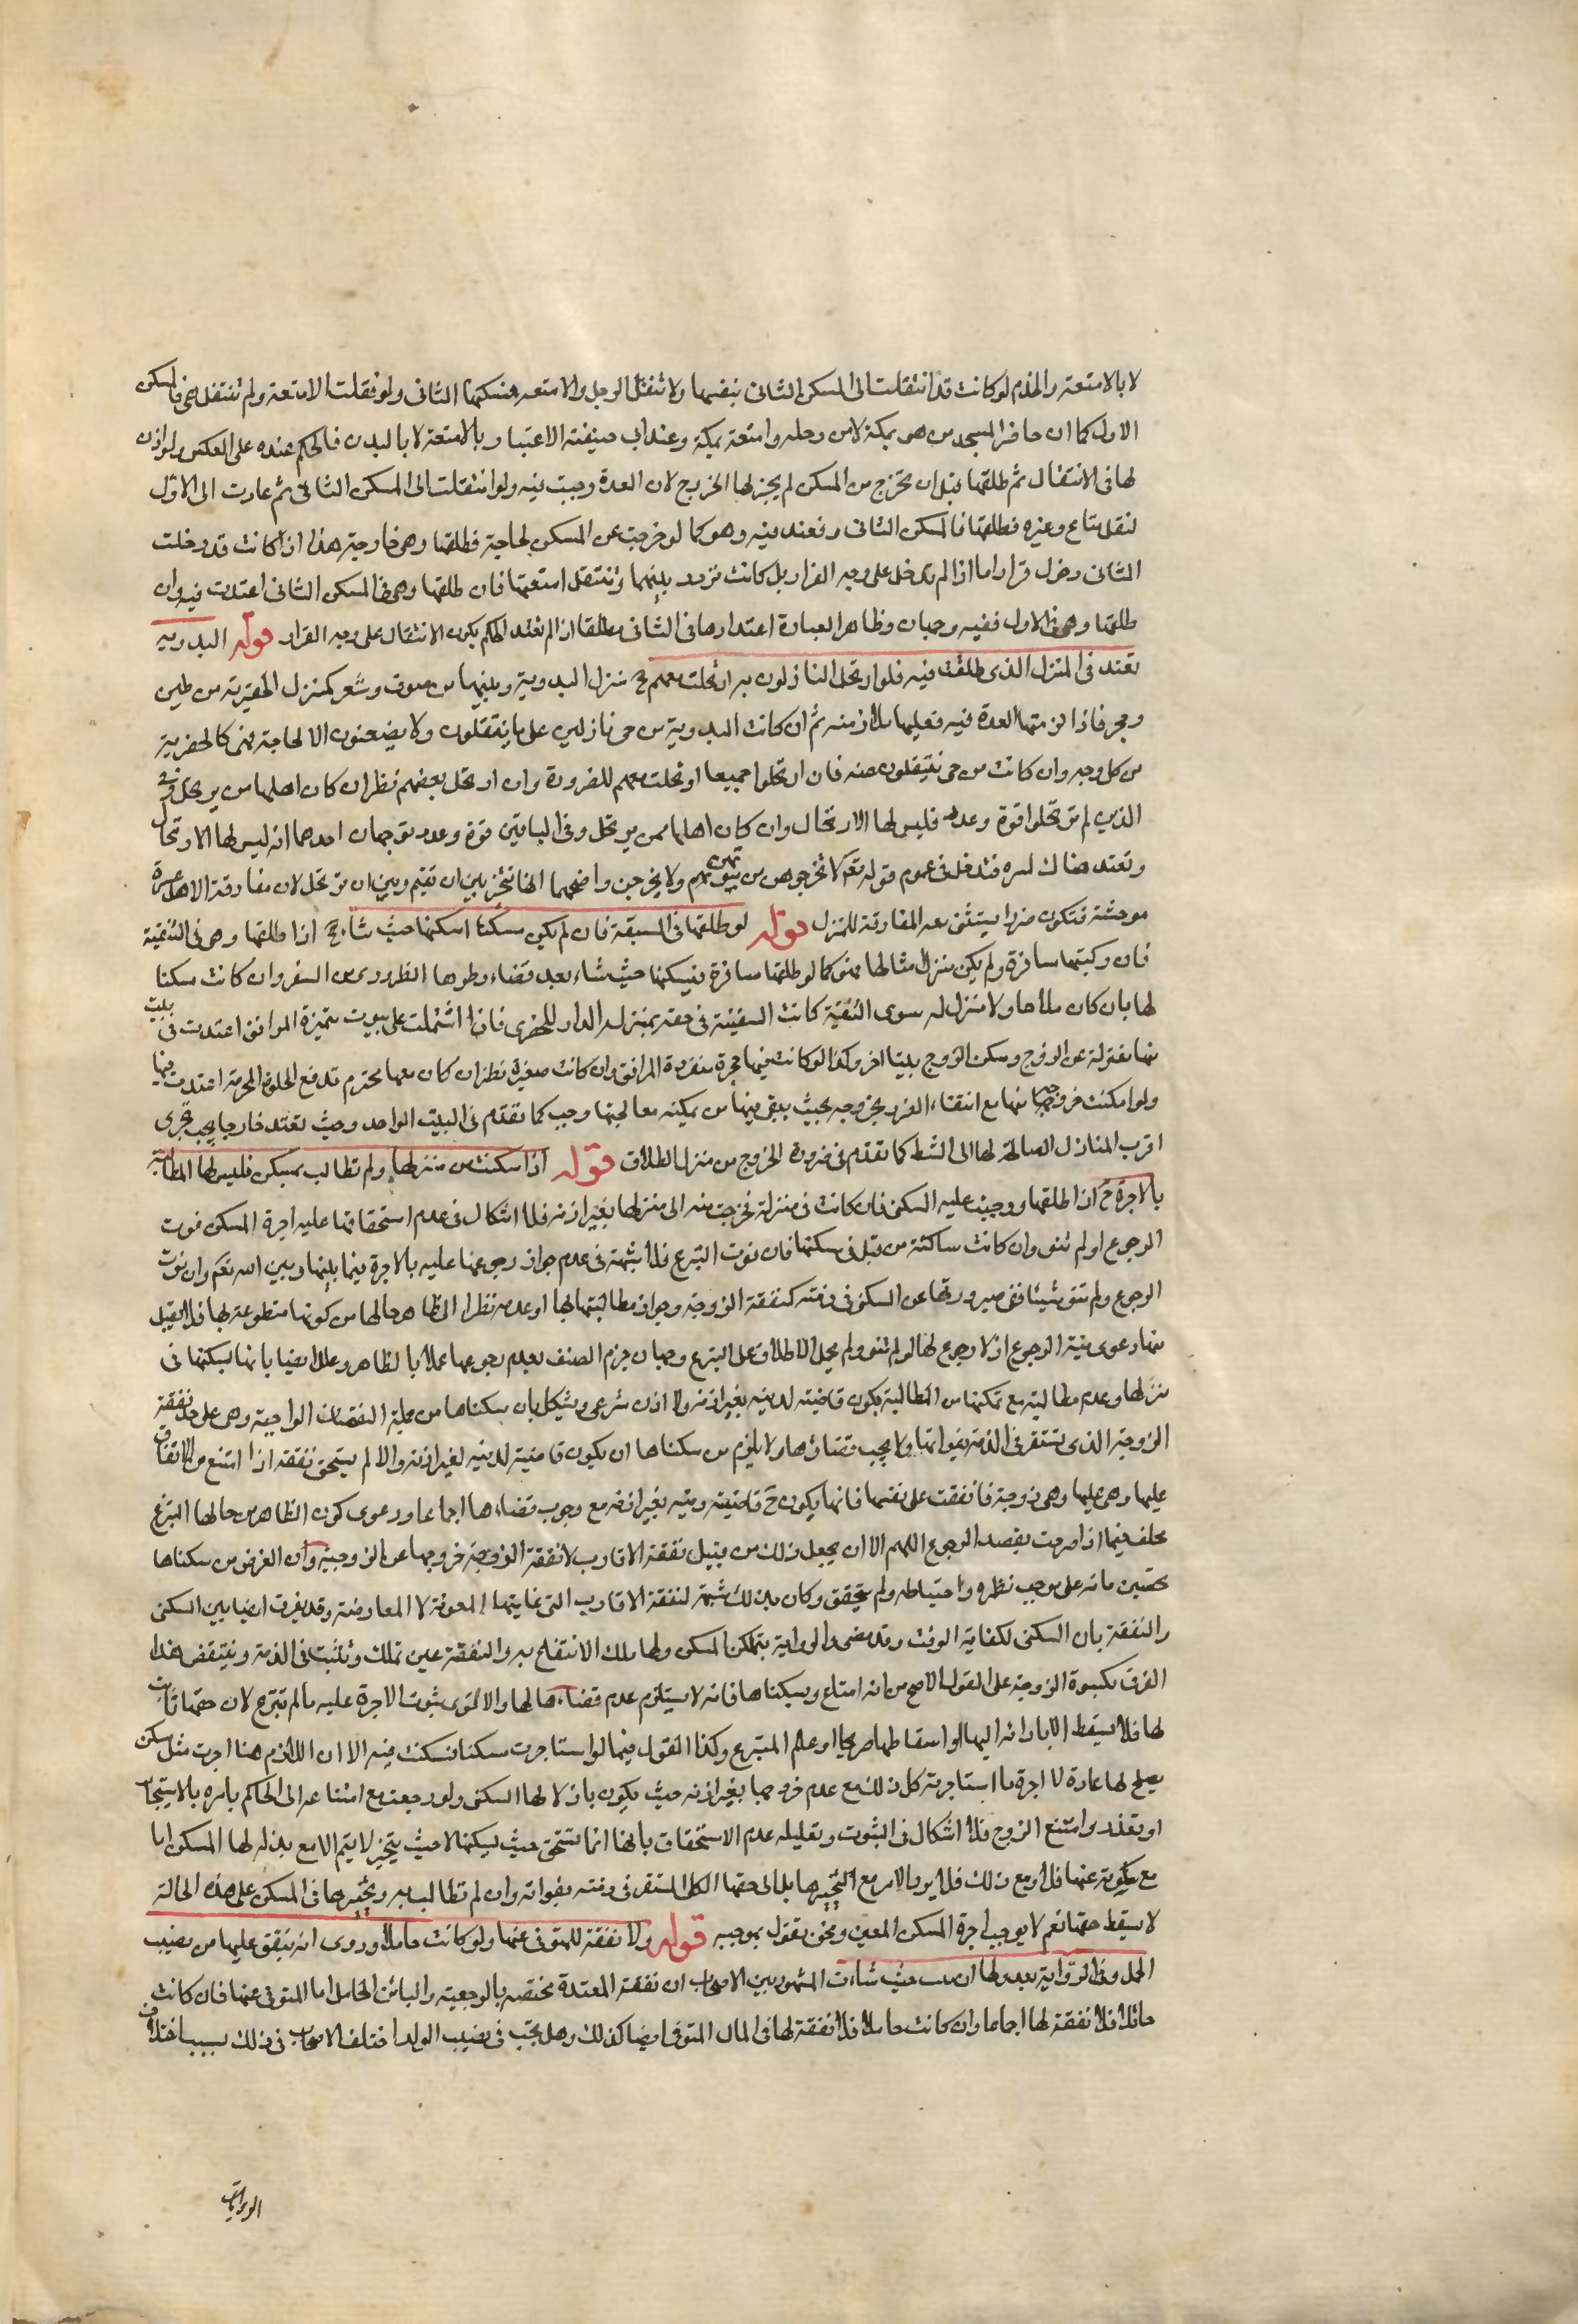 لا بالامتعة والخدم لو كانت قد انتقلت الى المسكن الثانى بنفسها ولا تنقل الرحل والامتعه فمسكنها الثانى ولو نقلت الامتعة ولم تنتقل هى فالمسكن
الاول كما ان حاضر المسجد من هو بمكة لا من رحله وامتعته بمكة وعند ابى حنيفة الاعتبار بالامتعة لا بالبدن فالحكم عنده على العكس ولو اذن
لها فى الانتقال ثم طلقها قبل ان تخرج من المسكن لم يجز لها الخروج لان العدة وجبت فيه ولو انتقلت الى المسكن الثانى ثم عادت الى الاول
لنقل متاع وغيره فطلقها فالمسكن الثانى فعتد فيه وهو كما لو خرجت عن المسكن لحاجة فطلقها وهى خارجة هذا اذا كانت قد دخلت
الثانى دخول قرار اما اذا لم تدخل على وجه القرار بل كانت تردد بينهما وتنتقل امتعتها فان طلقها وهى فى المسكن الثانى اعتدت فيه وان
طلقها وهى فى الاول ففيه وجهان وظاهر العبارة اعتدادها فى الثانى مطلقا اذ لم تعتد الحكم بكون الانتقال على وجه القرار قوله البدوية
تعتد فى المنزل الذى طلقت فيه فلو ارتحل النازلون به ارتحلت معهم ح منزل البدوية وبيتها من صوف وشعر كمنزل الحضرية من طين
وحجر فاذا لزمتها العدة فيه فعليها ملازمته ثم ان كانت البدوية من حى نازلين على ما ينتقلون ولا يضعنون الا لحاجة فهى كالحضرية
من كل وجه وان كانت من حى ينتقلون عنه فان ارتحلوا جميعا ارتحلت معهم للضرورة وان ارتحل بعضهم نظر ان كان اهلها من يرتحل وفى
الذين لم يرتحلوا قوة وعدد فليس لها الارتحال وان كان اهلها ممن يرتحل وفى الباقين قوة وعدد فوجهان احدهما انه ليس لها الارتحال
وتعتد هناك لسره فتدخل فى عموم قوله تعالى لا تخرجوهن من بيوتهن ولا يخرجن واضحهما انها تتخير بين ان تقيم وبين ان ترتحل لان مفارقة الاهل عسرة
موحشة فتكون ضررا يستثنى معه المفارقة للمنزل قوله لو طلقها فى السفينة فان لم يكن سكنا اسكنها حيث شاء ح اذا طلقها وهى فى السفينة
فان ركبتها مسافرة ولم يكن منزل مثالها فهو كما لو طلقها مسافرة فيسكنها حيث شاء بعد قضاء وطرها الضرورى من السفر وان كانت سكنا
لها بان كان ملاحا ولا منزل له سوى السفينة كانت السفينة فى حقه بمنزلة الدار للحضرى فان اشتملت على بيوت متميزة المرافق اعتدت فى بيت
منها بمعزلة عن الزوج وسكن الزوج بيتا اخر وكذا لو كانت فيها حجرة منفردة المرافق وان كانت صغيرة نظر ان كان معها محرم تدفع الخلوة المحرمة اعتدت فيها
ولو امكنت خروجها منها مع انتفاء الضرر بخروجه بحيث يبقى فيها من يمكنه معالجتها وجب كما تقدم فى البيت الواحد وحيث تعتد خارجا يجب تحرى
اقرب المنازل الصالحة لها الى الشط كما تقدم فى ضرورة الخروج من منزل الطلاق قوله اذا سكنت من منزلها ولم تطالب بمسكن فليس لها المطالبة
بالاجرة ح اذا طلقها ووجبت عليه السكنى فان كانت فى منزله فخرجت منه الى منزلها بغير اذنه فلا اشكال فى عدم استحقاقها عليه اجرة المسكن نوت
الرجوع او لم تنو وان كانت ساكنة من قبل فى مسكنها فان نوت التبرع فلا شبهة فى عدم جواز رجوعها عليه بالاجرة فيما بينها وبين الله تعالى وان نوت
الرجوع ولم تنو شيئا ففى صيرورتها عن السكنى فى ذمته كنفقة الزوجة وجواز مطالبتها بها او عدمه نظرا الى ظاهر حالها من كونها متطوعة بها فلا تقبل
منها دعوى نية الرجوع اذ لا رجوع لها لو لم تنو ولم يحل الاطلاق على التبرع وجهان جزم المصنف بعدم رجوعها عملا بالظاهر وعلل ايضا بانها بسكنها فى
منزلها وعدم مطالبته مع تمكنها من المطالبة يكون قاضيته لدينه بغير اذنه ولا اذن شرعى ويشكل بان سكناها من جملة النفقات الواجبة وهى على حد نفقة
الزوجة الذى تستقر فى الذمة بفواتها ولا يجب قضاؤها ولا يلزم من سكناها ان يكون قاضية لدينه لغير اذنه والا لم يستحق نفقه اذا امتنع من الانفاق
عليها وهى عليها وهى زوجة فانفقت على نفسها فانها يكون ح قاضيته دينه بغير اذنه مع وجوب قضاءها اجماعا ودعوى كون الظاهر من حالها التبرع
يحلف فيما اذا صرحت بقصد الرجوع اللهم الا ان يجعل ذلك من قبيل نفقة الاقارب لا نفقة الزوجية خروجها عن الزوجية وان الغرض من سكناها
تحصين مائه على موجب نظره واحتياطه ولم يتحقق وكان بذلك شبهة لنفقة الاقارب التى غايتها المعونة لا المعارضة وقد يفرق ايضا بين السكنى
والنفقة بان السكنى لكفاية الوقت وقد مضى والواجبة بتمكن المسكن ولها ملك الانتفاع به والنفقة عين تملك وتثبت فى الذمة وينتقض هذا
الفرق بكسوة الزوجة على القول الاصح من انه امتاع وبسكناها فانه لا يستلزم عدم قضاءها لها والاقوى ثبوت الاجرة عليه ما لم تتبرع لان حقها ثابت
لها فلا يسقط الا باداءه اليها او اسقاطها صريحا او علم التبرع وكذا القول فيما لو استاجرت سكنا فسكنت فيه الا ان اللازم هنا اجرت مثل مسكن
يصلح لها عادة لا اجرة ما استاجرته كل ذلك مع عدم خروجها بغير اذنه حيث يكون باذلا لها السكنى ولو رجعت مع امتناعه الى الحاكم بامره بالاستيجار
او تعذر وامتنع الزوج فلا اشكال فى الثبوت وتعليله عدم الاستحقاق بانها انما تستحق حيث يسكنها لا حيث يتخير لا يتم الا مع بذله لها المسكن اما
مع سكوته عنها فلا ومع ذلك فلا يرد الامر مع التخييرها بل الى حقها الكلى المستقر فى ذمته بفواته وان لم تطالب به وتخييرها فى المسكن على هذه الحالة
لا يسقط حقها نعم لا يوجب اجرة المسكن المعين ونحن نقول بموجبه قوله ولا نفقة للمتوفى عنها ولو كانت حاملا وروى انه ينفق عليها من نصيب
الحمل وفى الرواية بعد ولها ان تبيت حيث شاءت المشهور بين الاصحاب ان نفقة المعتدة مختصه بالرجعية والبائن الحامل اما المتوفى عنها فان كانت
حائلا فلا نفقة لها اجماعا وان كانت حاملا فلا نفقة لها فى المال المتوفى ايضا كذلك وهل يجب فى نصيب الولد اختلف الاصحاب فى ذلك بسبب اختلاف
الروايات